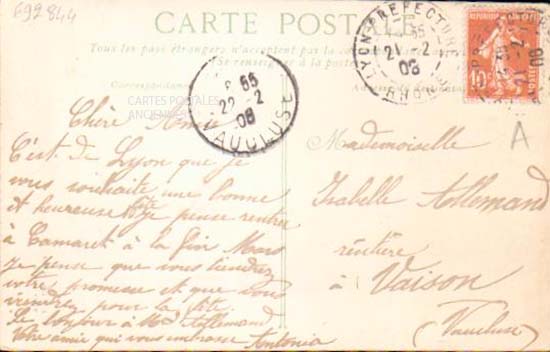 692844
CARTE POSTALE
Tous les pays étrangers n'acceptent pas la correspondance
Se renseigner à la poste
Correspondance
CARTES POSTALES
ANCIENNES
Chère Amie
C'est de Lyon que je
vous souhaite une bonne
et heureuse fête je pense rentrer
à Camaret à la fin Mars
Je pense que vous tiendrez
votre promesse et que vous
viendrez pour la fête
Le bonjour à Md Allemand
Votre amie qui vous embrasse Antonia
55
22 - 2
08
VAUCLUSE
LYON-PREFECTURE
55
21 - 2
08
RHONE
10c
A
Mademoiselle
Isabelle Allemand
rentière
à Vaison
(Vaucluse)